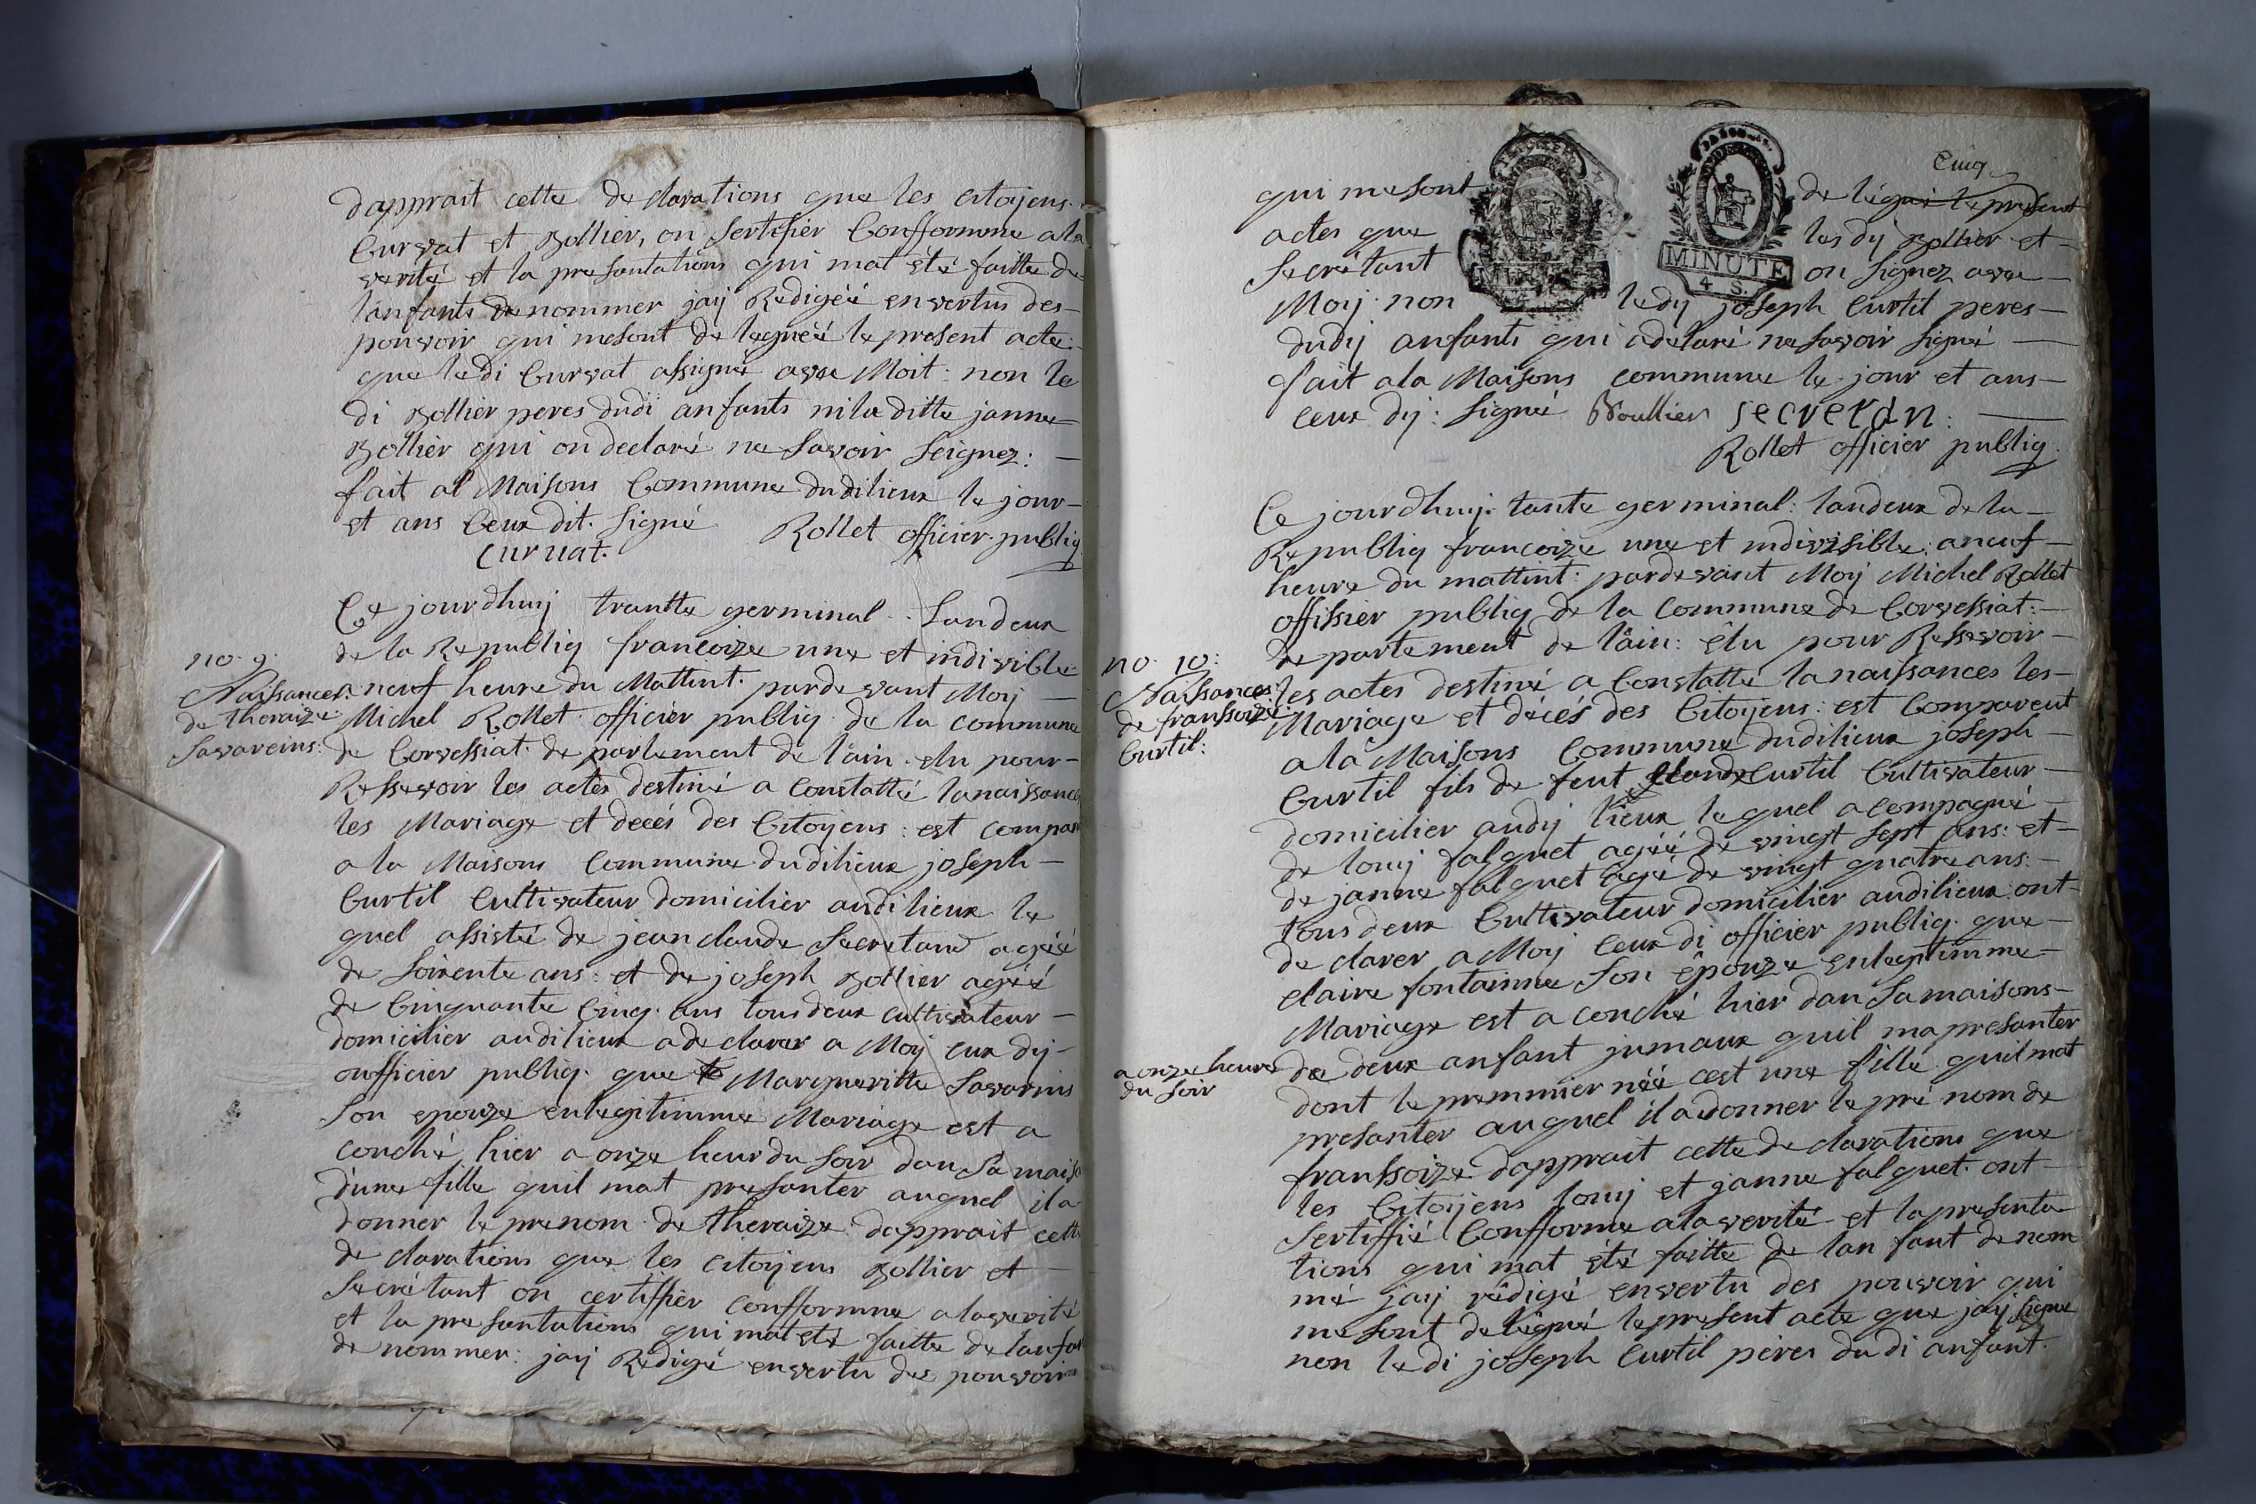 dapprait cette de clarations que les citoyens
Curvat et Rollier, on sertifier Confformme ala
verité et la presantations qui mat été faitte de
lanfants denommer jaÿ Redigéé envertus des
pouvoir qui mesont de leguéé le present acte
que ledi Curvat assigné avee Moit: non le
di Rollier peres dudi anfants nila ditte janne
Rollier qui on declaré ne savoir seignez:
fait al Maisons Commune dudilieux le jour
et ans Ceux dit. signé Rollet officier publiq
Curuat.
Ce jourdhuij trantte germinal. Landeux
de la Republiq francoize une et indivible
no. 9.
Naissances
de theraize
Savareins:
a neuf heure du Mattint. pardevant Moij
Michel Rollet officier publiq de la commune
de Corvessiat departement de l'ain. elu pour
Ressevoir les actes destiné a Constatté lanaissances
les Mariage et decés des Citoyens: est compar
a la Maisons Commune dudilieux joseph
Curtil Cultivateur domicilier audilieux le
quel assisté de jean claude Secretand agéé
de soixente ans: et de joseph Rollier agéé
de Cinquante Cinq. ans tousdeux cultivateur
domicilier audilieux a declarer a Moij eux dij
oufficier publiq. que Margueritte Savarins
son epouze enlegitimme Mariage est a
couché hier a onze heur du soir dansa maiso
d'une fille quil mat presanter auquel il a
donner le prenom de theraize dapprait cette
de clarations que les citoijens Rollier et
Secrétant on certiffier confformme alaverité
et la presantations qui mat eté faitte de lanfan
de nommer: jaij Redigé envertu des pouvoir
Cinq
qui me sont de légué le présent
actes que les dij Rollier et
Secrétant on signez avee
Moij. non le dij joseph Curtil peres
dudij anfants qui adelaré nesavoir signé
fait ala Maisons commune le jour et ans
ceux dij: signé Roullier secretan:
Rollet officier publiq.
Ce jourdhuij. tante germinal: landeux de la
Republiq francoize une et indivisible: aneuf
heure du mattint: pardevant Moij Michel Rollet
offissier publiq de la Commune de Corvessiat:
departement de l'ain: êlu pour Ressevoir
no. 10:
Naissances
de franssoize
Curtil:
les actes destiné a Constatté lanaissances les
Mariage et décés des Citoijens: est Comparent
a la Maisons Commune dudilieux joseph
Curtil fils de feut Claude Curtil Cultivateur
domicilier audij lieux lequel acompagné
de louij falquet agéé de vingt sept ans: et
de janne falquet agé de vingt quatre ans:
tous deux Cultivateur domicilier audilieux: ont
de clarer a Moij Ceux di officier publiq. que
claire fontainne son êpouze enlegitimme
Mariage est a couché hier dan samaisons
a onze heures
du soir
de deux anfant jumaux quil ma presanter
dont le premmier néé cest une fille quil mat
presanter auquel il adonner le pré nom de
franssoize dapprait cette de clarations que
les Citoijens louij et janne falquet. ont
sertiffié Confforme alaverité et la presenta
tions qui mat été faitte de lan fant de nom
mé jaij rédigé envertu des pouvoir qui
me sont delégué le present acte que jaij signe
non le di joseph Curtil péres du di anfant.
MINUTE
4 S.